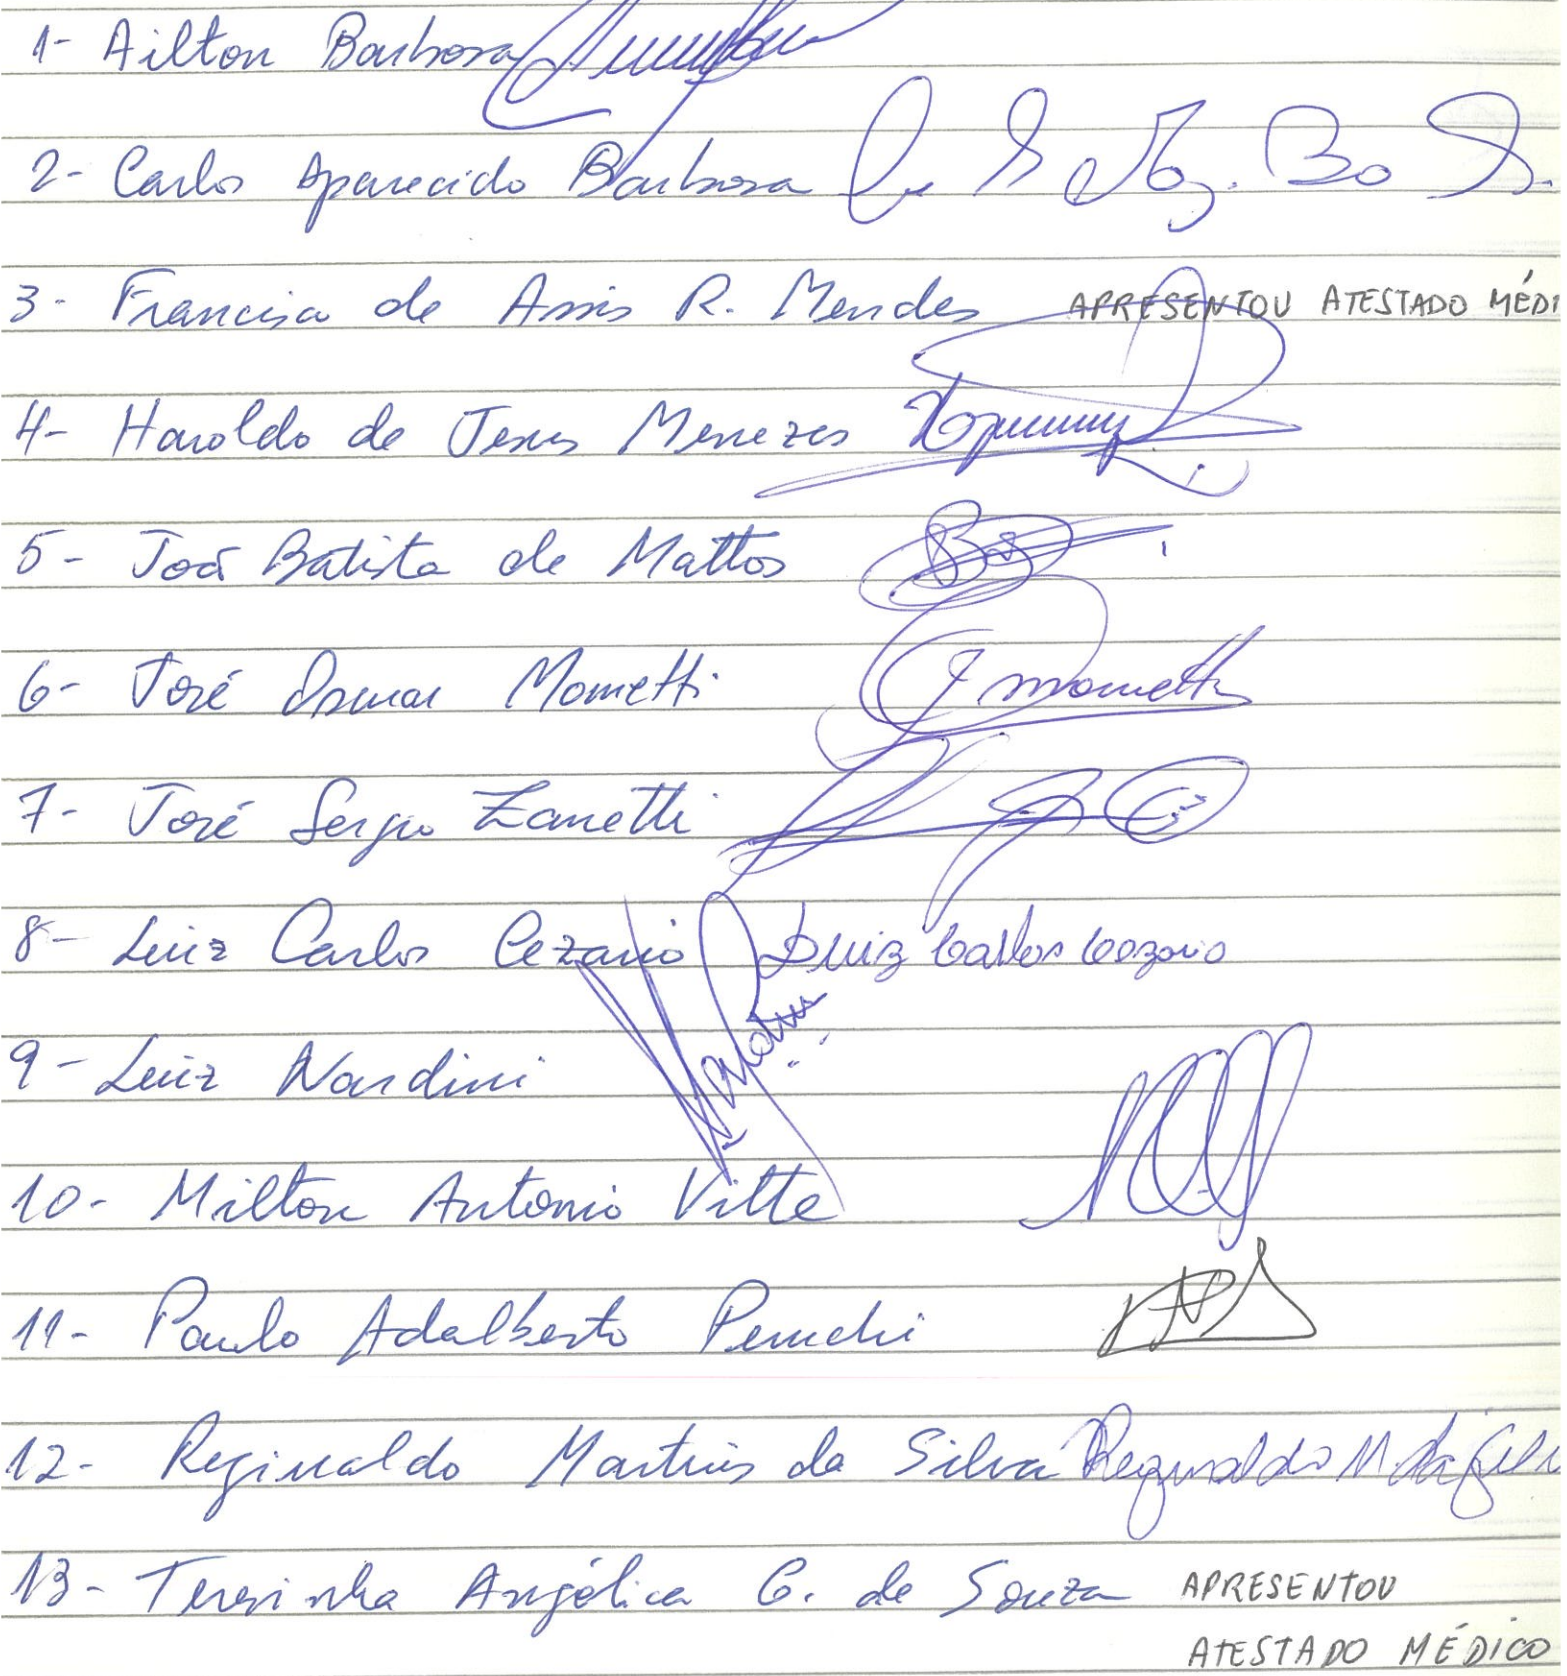 1- Ailton Barbosa
2- Carlos Aparecido Barbosa
3- Francisca de Assis R. Mendes APRESENTOU ATESTADO MÉDI
4- Haroldo de Jesus Menezes
5- João Batista de Mattos
6- José Osmar Mometti J Mometti
7- José Sergio Zanetti
8- Luiz Carlos Cezario Luiz Carlos Cezario
9- Luiz Nardini Nardini
10- Milton Antonio Vitte
11- Paulo Adalberto Peruchi
12- Reginaldo Martins da Silva Reginaldo M. da Silv
13- Teresinha Angélica G. de Souza APRESENTOU
ATESTADO MÉDICO